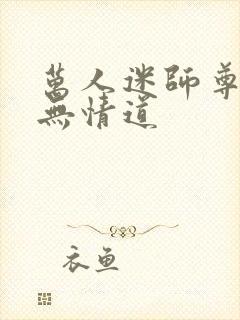 萬人迷師尊
無情道
衣鱼